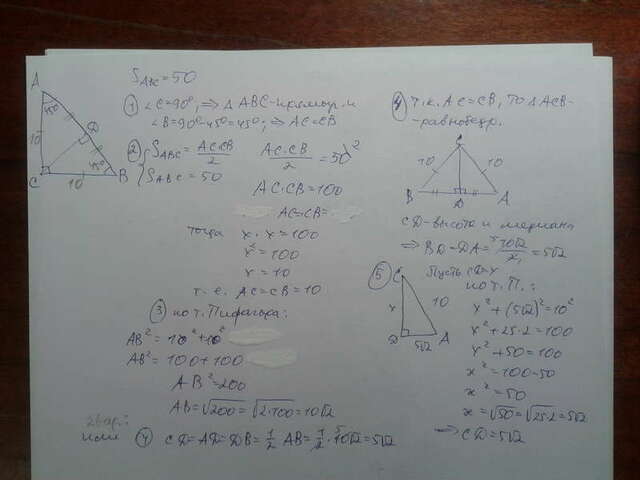 S_ABC = 50
A
45°
10
D
45°
C
10
B
① ∠C=90°, ⇒ △ABC-прямоу. и
∠B=90°-45°=45°; ⇒ AC=CB
② { S_ABC = AC·CB/2
S_ABC = 50
AC·CB/2 = 50
AC·CB=100
AC=CB=
тогда x·x=100
x²=100
x=10
т. е. AC=CB=10
③ по т. Пифагора:
AB²=10²+10²
AB²=100+100
AB²=200
AB=√200=√2·100=10√2
2 вар.:
или ④ CD=AD=DB=1/2 AB=1/2·10√2=5√2
④ т.к. AC=CB, то △ACB-
-равнобедр.
10
10
B
D
A
CD-высота и медиана
⇒ BD=DA=10√2/2=5√2
⑤
C
x
10
D
5√2
A
Пусть CD=x
по т. П.:
x²+(5√2)²=10²
x²+25·2=100
x²+50=100
x²=100-50
x²=50
x=√50=√25·2=5√2
⇒ CD=5√2